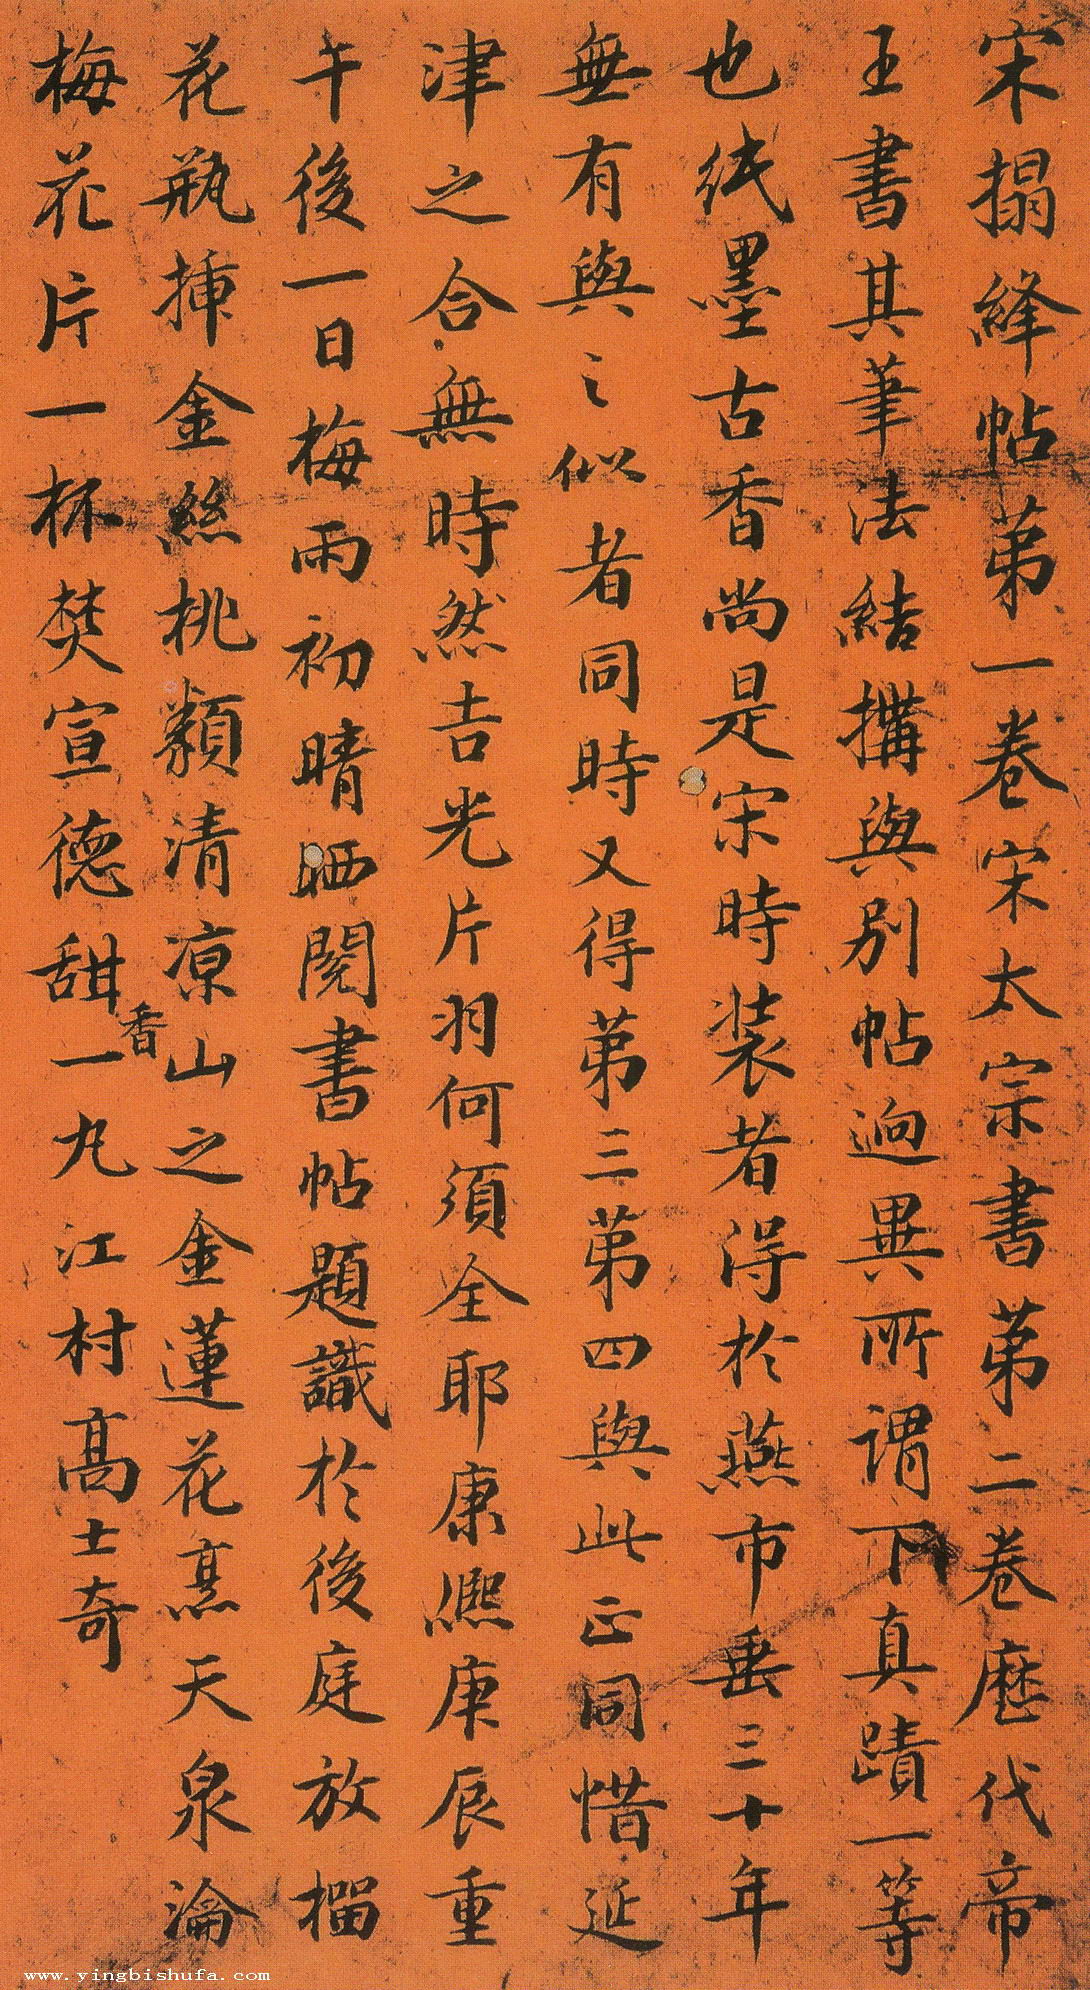 宋搨絳帖第一卷宋太宗書第二卷歷代帝
王書其筆法結搆與別帖迥異所謂下真蹟一等
也紙墨古香尚是宋時装者得於燕市垂三十年
無有與之似者同時又得第三第四與此正同惜延
津之合無時然吉光片羽何須全耶康熙庚辰重
午後一日梅雨初晴晒閱書帖題識於後庭放榴
花瓶揷金絲桃纇清凉山之金蓮花烹天泉瀹
梅花片一杯焚宣德甜香一丸江村髙士奇
www.yingbishufa.com